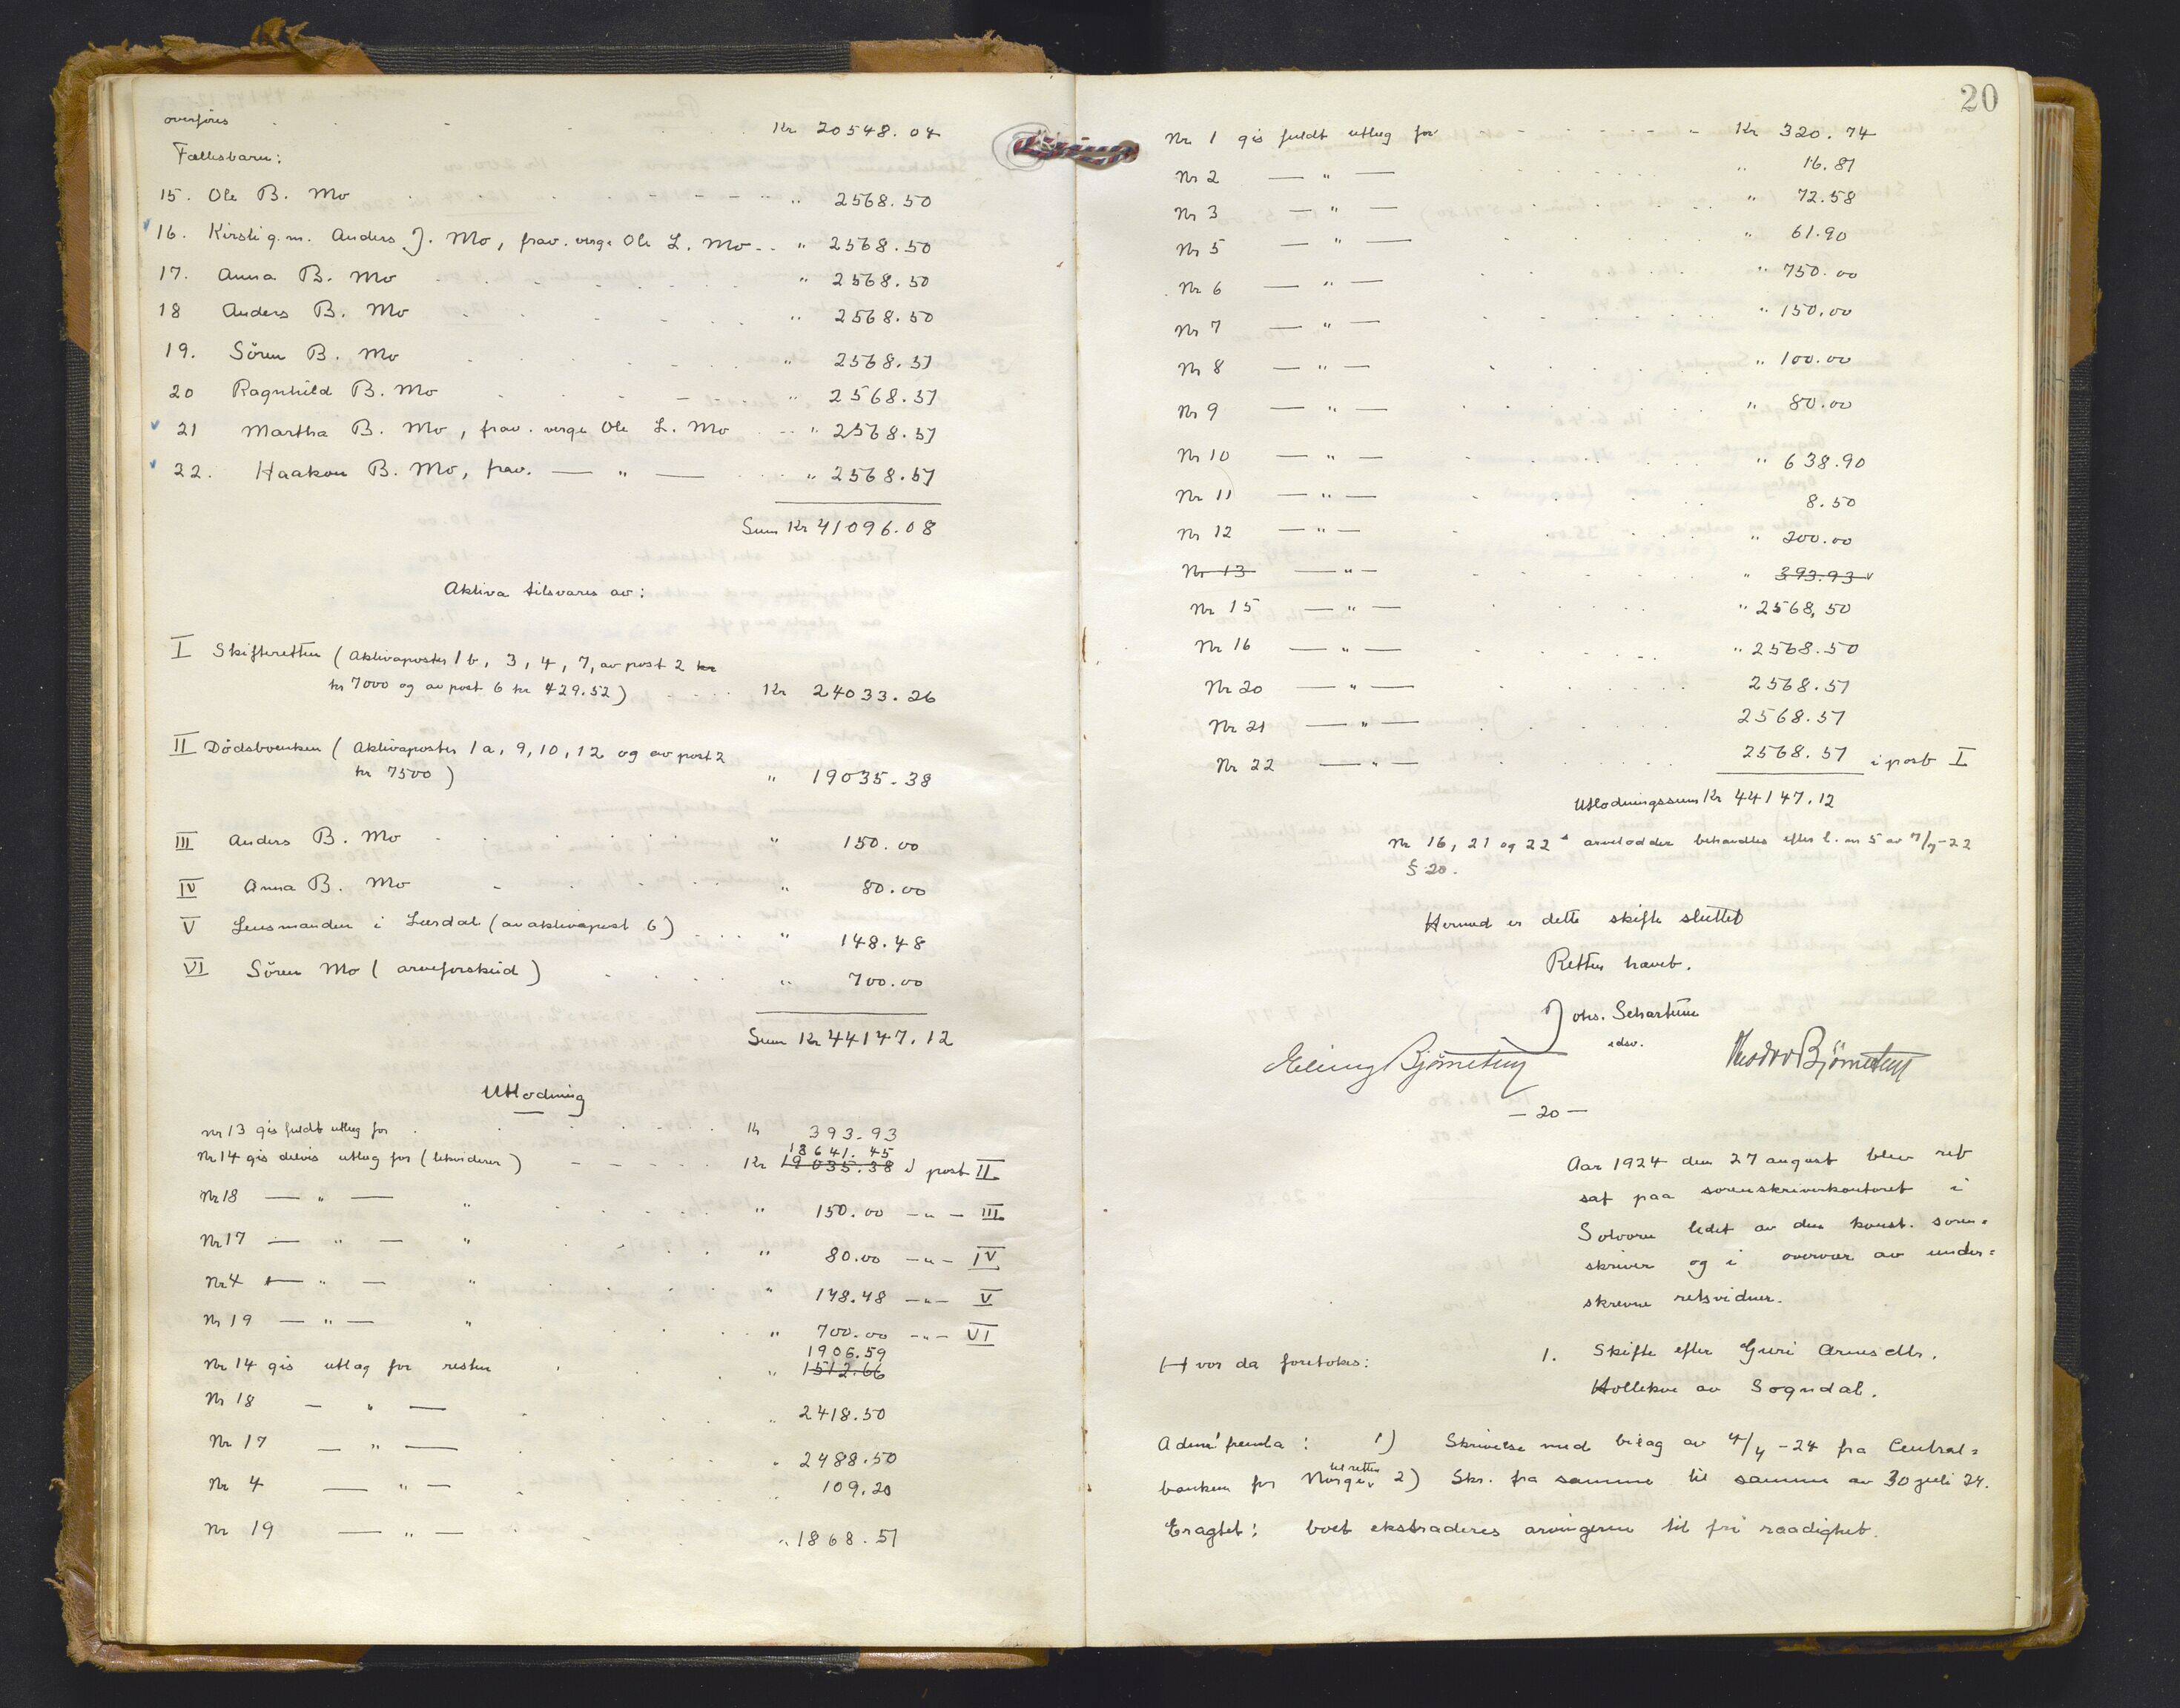 overføres Kr 20548.04
Fællesbarn:
15. Ole B. Mo " 2568.50
16. Kirsti g.m. Anders J. Mo, frav. verge Ole L. Mo " 2568.50
17. Anna B. Mo " 2568.50
18 Anders B. Mo " 2568.50
19. Sören B. Mo " 2568.51
20 Ragnhild B. Mo " 2568.51
21 Martha B. Mo, frav. verge Ole L. Mo " 2568.51
22. Haakon B. Mo, frav. — " — " 2568.51
Sum Kr 41096.08
Aktiva tilsvares av:
I Skifteretten (Aktivaposter 1 b, 3, 4, 7, av post 2 kr
kr 7000 og av post 6 kr 429.52) Kr 24033.26
II Dödsboenken (Aktivaposter 1 a, 9, 10, 12 og av post 2
kr 7500) " 19035.38
III Anders B. Mo " 150.00
IV Anna B. Mo " 80.00
V Lensmanden i Lærdal (av aktivapost 6) " 148.48
VI Sören Mo (arveforskud) " 700.00
Sum Kr 44147.12
Utlodning
Nr 13 gis fuldt utlæg for Kr 393.93
18641.45
Nr 14 gis delvis utlæg for (likviderer) Kr 19035.38 i post II
Nr 18 — " — " " 150.00 — " — III
Nr 17 — " — " " 80.00 — " — IV
Nr 4 — " — " " 148.48 — " — V
Nr 19 — " — " " 700.00 — " — VI
1906.59
Nr 14 gis utlæg for resten " 1512.66
Nr 18 — " — " 2418.50
Nr 17 — " — " 2488.50
Nr 4 — " — 109.20
Nr 19 — " — " 1868.51
20
Nr 1 gis fuldt utlæg for Kr 320.74
Nr 2 — " — " 16.81
Nr 3 — " — " 72.58
Nr 5 — " — " 61.90
Nr 6 — " — " 750.00
Nr 7 — " — " 150.00
Nr 8 — " — " 100.00
Nr 9 — " — " 80.00
Nr 10 — " — " 638.90
Nr 11 — " — 8.50
Nr 12 — " — " 200.00
Nr 13 — " — " 393.93
Nr 15 — " — " 2568,50
Nr 16 — " — " 2568.50
Nr 20 — " — 2568.51
Nr 21 — " — 2568.51
Nr 22 — " — 2568.51 i post I
Utlodningssum Kr 44147.12
Nr 16, 21 og 22s arvelodder behandles efter l. nr 5 av 7/7-22
§ 20.
Hermed er dette skifte sluttet
Retten hævet.
Johs. Schartum
edsv.
Elling Bjørnetun Theodor Bjørnetun
— 20 —
Aar 1924 den 27 august blev ret
sat paa sorenskriverkontoret i
Solvorn ledet av den konst. soren=
skriver og i overvær av under=
skrevne retsvidner.
Hvor da foretokes: 1. Skifte efter Guri Arnesdtr.
Hollekve av Sogndal.
Adm. fremla: 1) Skrivelse med bilag av 4/4-24 fra Central=
til retten
banken for Norge, 2) Skr. fra samme til samme av 30 juli 24.
Eragtet: boet ekstraderes arvingerne til fri raadighet.